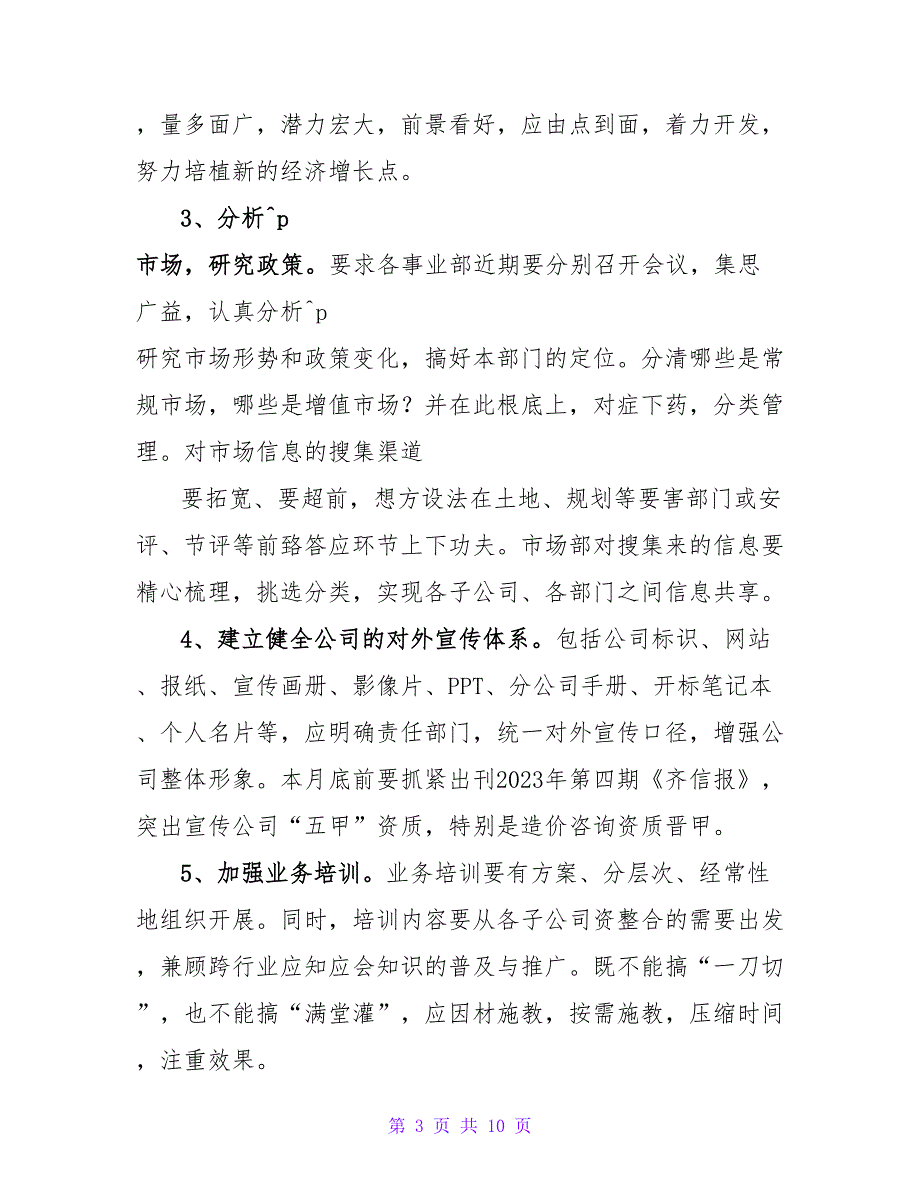 ，量多面广，潜力宏大，前景看好，应由点到面，着力开发，
努力培植新的经济增长点。
3、分析^p
市场，研究政策。要求各事业部近期要分别召开会议，集思
广益，认真分析^p
研究市场形势和政策变化，搞好本部门的定位。分清哪些是常
规市场，哪些是增值市场？并在此根底上，对症下药，分类管
理。对市场信息的搜集渠道
要拓宽、要超前，想方设法在土地、规划等要害部门或安
评、节评等前臵答应环节上下功夫。市场部对搜集来的信息要
精心梳理，挑选分类，实现各子公司、各部门之间信息共享。
4、建立健全公司的对外宣传体系。包括公司标识、网站
、报纸、宣传画册、影像片、PPT、分公司手册、开标笔记本
、个人名片等，应明确责任部门，统一对外宣传口径，增强公
司整体形象。本月底前要抓紧出刊2023年第四期《齐信报》，
突出宣传公司“五甲”资质，特别是造价咨询资质晋甲。
5、加强业务培训。业务培训要有方案、分层次、经常性
地组织开展。同时，培训内容要从各子公司资整合的需要出发
，兼顾跨行业应知应会知识的普及与推广。既不能搞“一刀切
”，也不能搞“满堂灌”，应因材施教，按需施教，压缩时间
，注重效果。
第 3 页 共 10 页